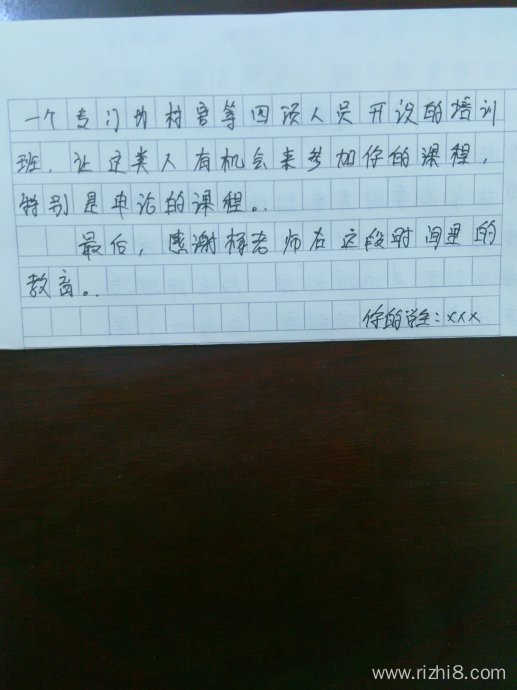 一个专门为村官等四项人员开设的培训
班，让这类人有机会来参加你的课程，
特别是申论的课程。
最后，感谢杨老师在这段时间里的
教育。
你的学生：xxx
www.rizhi8.com